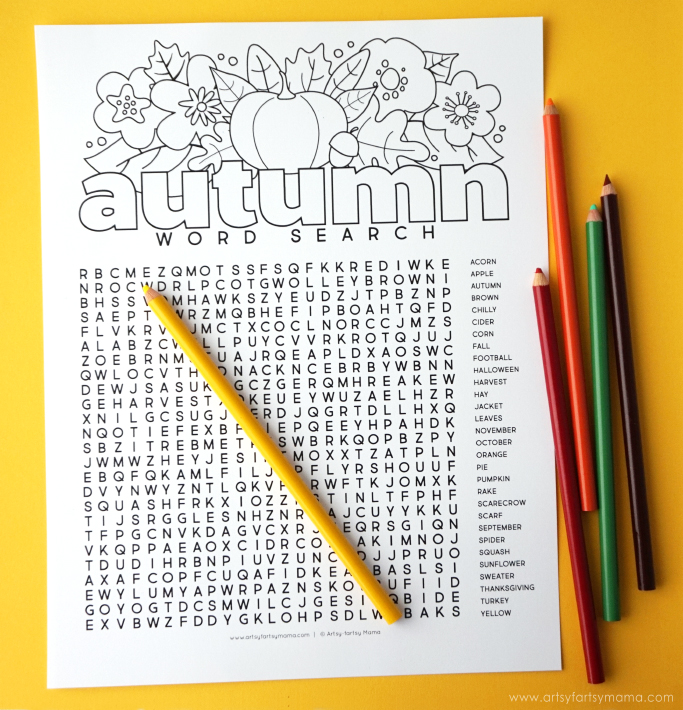 autumn
WORD SEARCH
R B C M E Z Q M O T S S F S Q F K K R E D I W K E
N R O C W D R L P C O T G W O L L E Y B R O W N I
B H S S M H A W K S Z Y E U D Z J T P B Z N P
S A E P T W R Z M Q B H E F I P B O A H T Q F D
F L V K R V J M C T X C O C L N O R C C J M Z S
A L A B Z C L L P U Y C V V R K R O T Q J U J
Z O E B R N M F U A J R Q E A P L D X A O S W C
Q W L O C V T H D N A C K N C E B R B Y W B N N
D E W J S A S U K G C Z G E R Q M H R E A K E W
G E H A R V E S T D K E U E Y W U Z A E L H Z R
X N I L G C S U G J E R D J Q G R T D L L H X Q
N Q O T I E F E X B F I E P Q E E Y H P A H D K
S B Z I T R E B M E T S W B R K Q O P B Z P Y
J W M W Z H E Y J E S I M O X X T Z A T P L N
E B Q F Q K A M L F I L J P F L Y R S H O U U F
D V Y N W Y Z N T L Q K V R W F T K J O M X K
S Q U A S H F R K X I O Z Z S T I N L T F P H F
T I J S R G G L E S N H Z N R A J C U Y Y K K U
T F P G C N V K D A G V C X R E Q R S G I Q N
V K Q P P A E A O X C I D R C O A K I M N O J
T D U D I H R B N P I U V Z U N C D J J P R U O
A X A F C O P F C U Q A F I D K E A B A S L S I
E W Y L U M Y A P W R P A Z N S K O S U F I I D
G O Y O G T D C S M W I L C J G E S I Q B I D E
E X V B W Z F D D Y G K L O H P S D L W B A K S
ACORN
APPLE
AUTUMN
BROWN
CHILLY
CIDER
CORN
FALL
FOOTBALL
HALLOWEEN
HARVEST
HAY
JACKET
LEAVES
NOVEMBER
OCTOBER
ORANGE
PIE
PUMPKIN
RAKE
SCARECROW
SCARF
SEPTEMBER
SPIDER
SQUASH
SUNFLOWER
SWEATER
THANKSGIVING
TURKEY
YELLOW
www.artsyfartsymama.com | © Artsy-fartsy Mama
www.artsyfartsymama.com